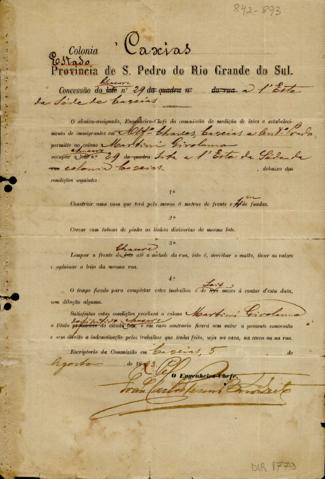 842-893
Colonia Caxias
Estado
Provincia de S. Pedro do Rio Grande do Sul.
chacara
Concessão do lote nº 29 da quadra nº da rua a l'Este
da Séde de Caxias
O abaixo-assignado, Engenheiro-Chefe da commissão de medição de lotes e estabeleci-
mento de immigrantes em Caxias a
permitte ao colono Martini Girolamo
chacara
occupe nº 29 da quadra Sita a l'Este da Séde da
colonia Caxias, debaixo das
condições seguintes:
1ª
Construir uma casa que terá pelo menos 6 metros de frente e 4m de fundos.
2ª
Cercar com taboas de pinho as linhas divisorias do mesmo lote.
3ª
chacara
Limpar a frente do lote até a metade da rua, isto é, derribar o matto, tirar as raizes
e aplainar o leito da mesma rua.
4ª
O tempo fixado para completar estes trabalhos é de seis mezes á contar d'esta data,
sem dilação alguma.
Satisfeitas estas condições receberá o colono Martini Girolamo
o Titulo definitivo da chacara e em caso contrario ficará sem valor a presente concessão
e sem direito a indemnisação pelos trabalhos que tenha feito, seja na casa, na cerca ou na rua.
Escriptorio da Commissão em Caxias, 5
Agosto
O Engenheiro-Chefe,
DIR 1779